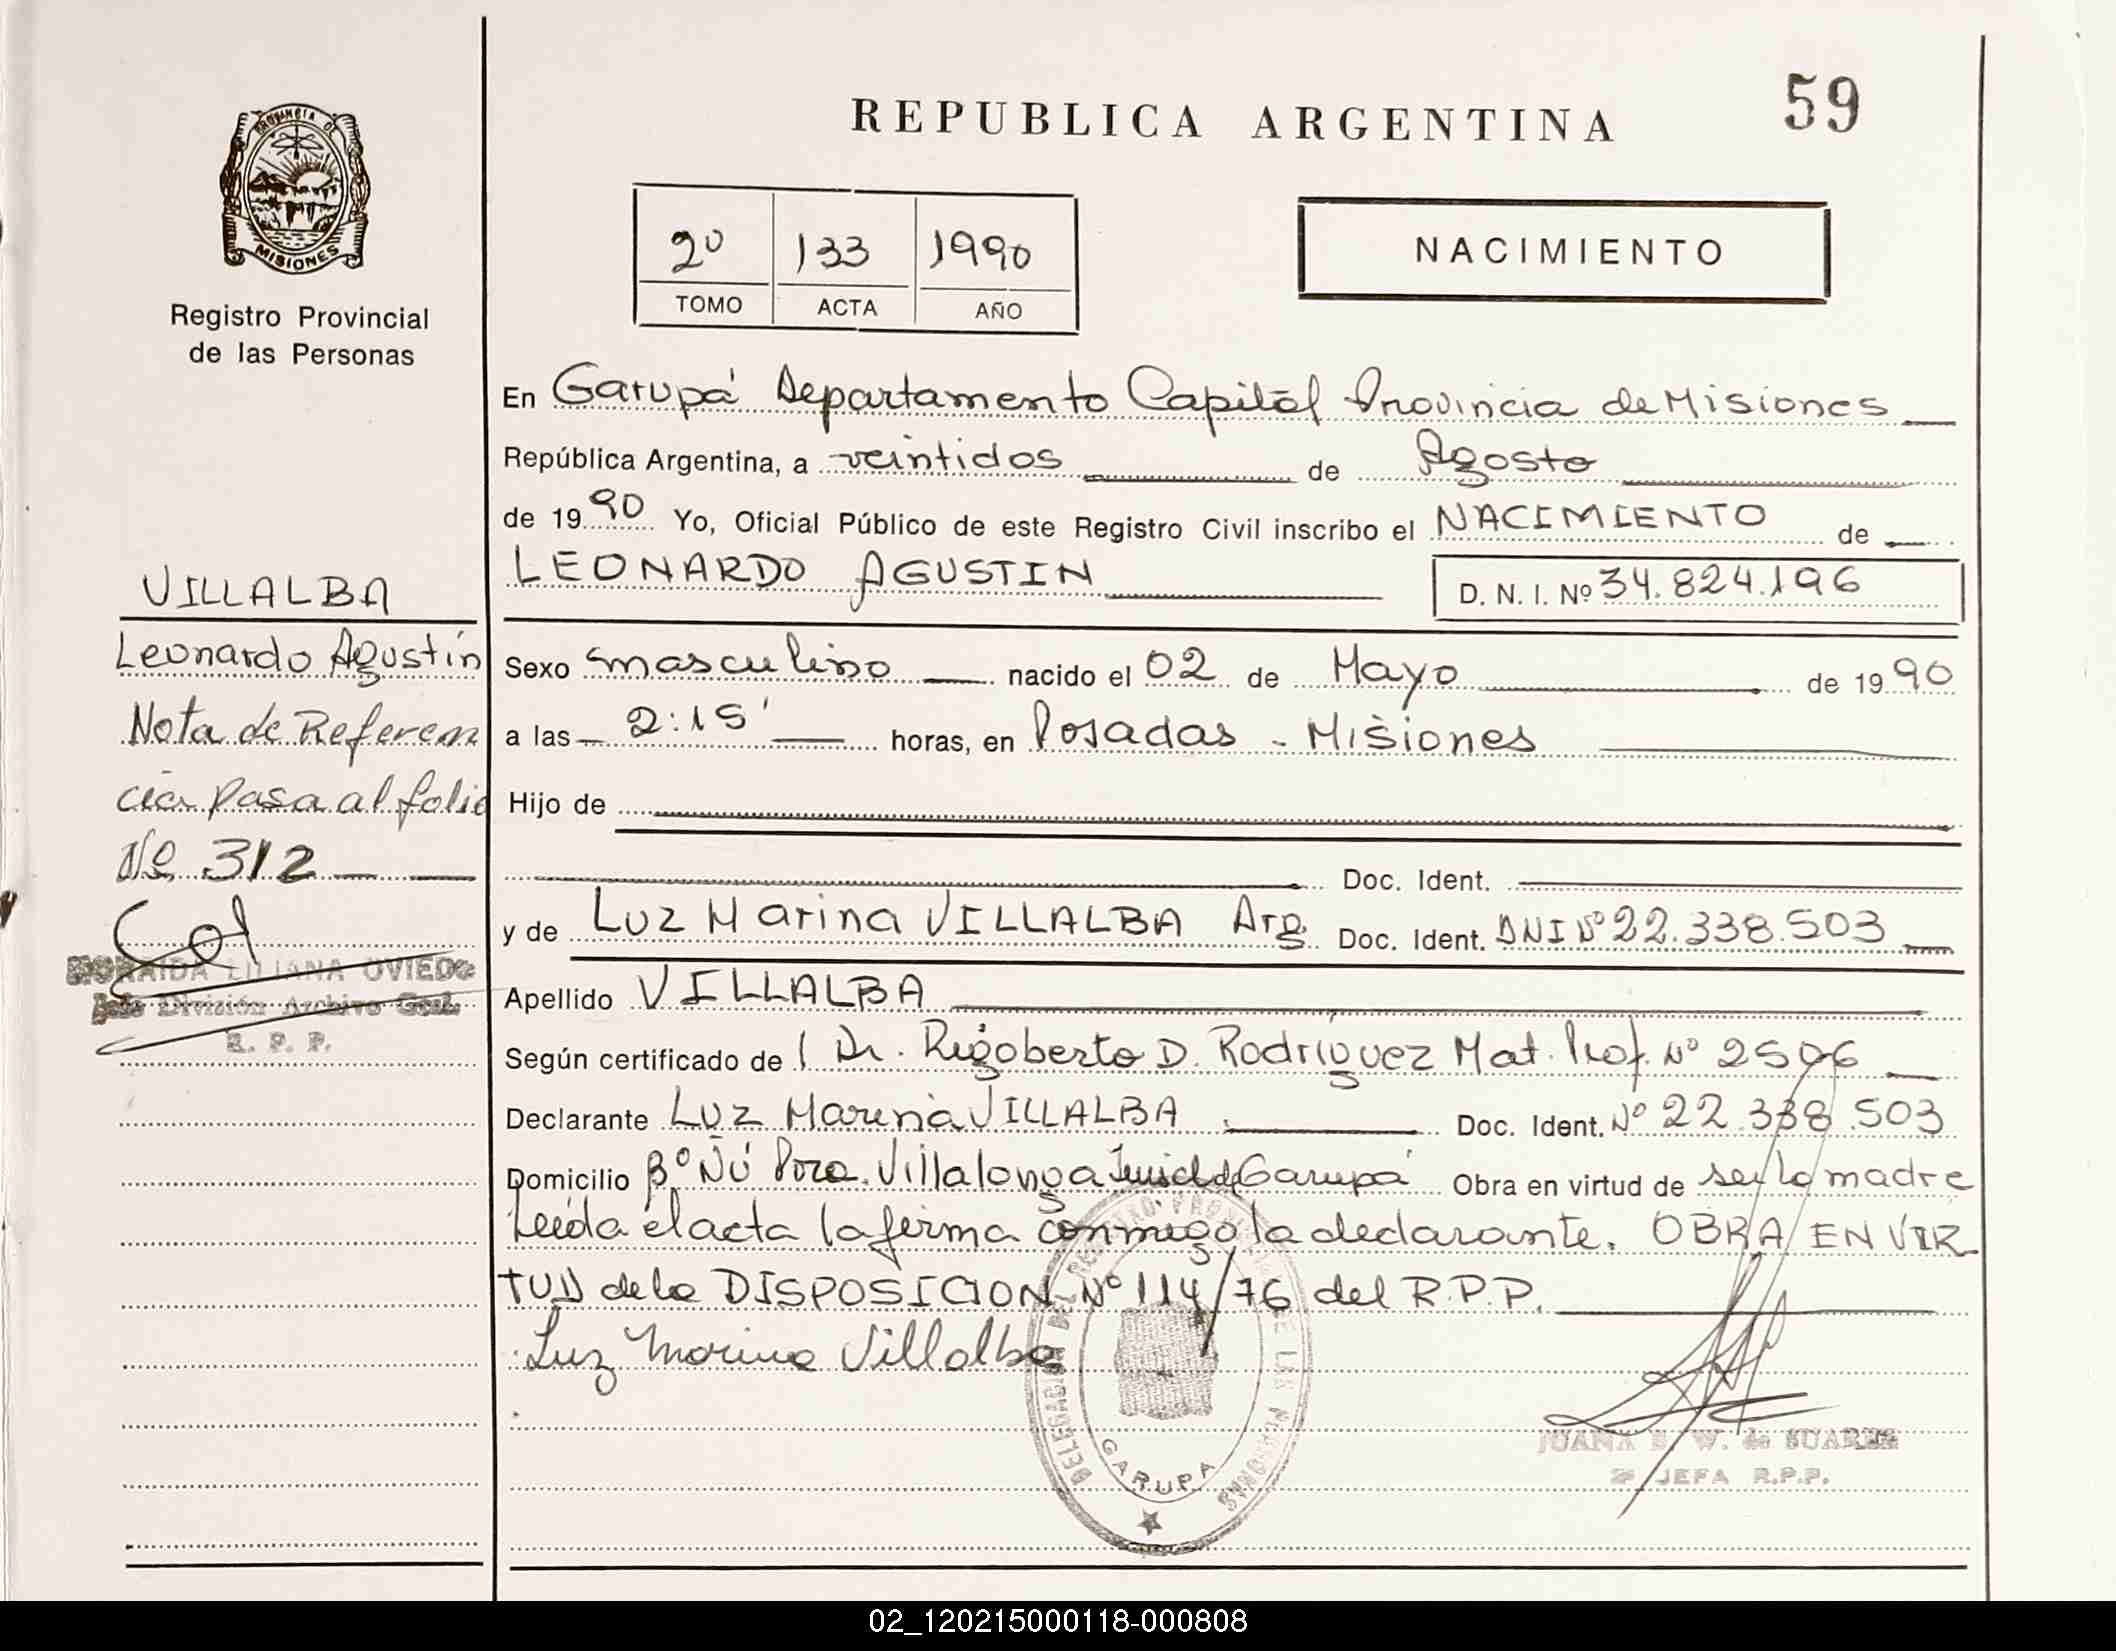 REPUBLICA ARGENTINA
59
PROVINCIA DE
MISIONES
Registro Provincial
de las Personas
2º 133 1990
TOMO ACTA AÑO
NACIMIENTO
En Garupá Departamento Capital Provincia de Misiones
República Argentina, a veintidos de Agosto
de 1990 Yo, Oficial Público de este Registro Civil inscribo el NACIMIENTO de
LEONARDO AGUSTIN D. N. I. Nº 34.824.196
Sexo masculino nacido el 02 de Mayo de 1990
a las 2:15' horas, en Posadas - Misiones
Hijo de
Doc. Ident.
y de Luz Marina VILLALBA Arg. Doc. Ident. DNI Nº 22.338.503
Apellido VILLALBA
Según certificado de Dr. Rigoberto D. Rodríguez Mat. Prof. Nº 2506
Declarante Luz Marina VILLALBA Doc. Ident. Nº 22.338.503
Domicilio Bº Ñú Pora. Villalonga Garupá Obra en virtud de ser la madre
Leída el acta la firma conmigo la declarante. OBRA EN VIR
TUD de la DISPOSICION Nº 114/76 del R.P.P.
Luz Marina Villalba
VILLALBA
Leonardo Agustín
Nota de Referen
cia pasa al folio
Nº 312
LILIANA OVIEDO
División Archivo Gral.
R. P. P.
DELEGACION DEL REGISTRO PROVINCIAL DE LAS PERSONAS
GARUPA
JUANA W. de SUAREZ
JEFA R.P.P.
02_120215000118-000808